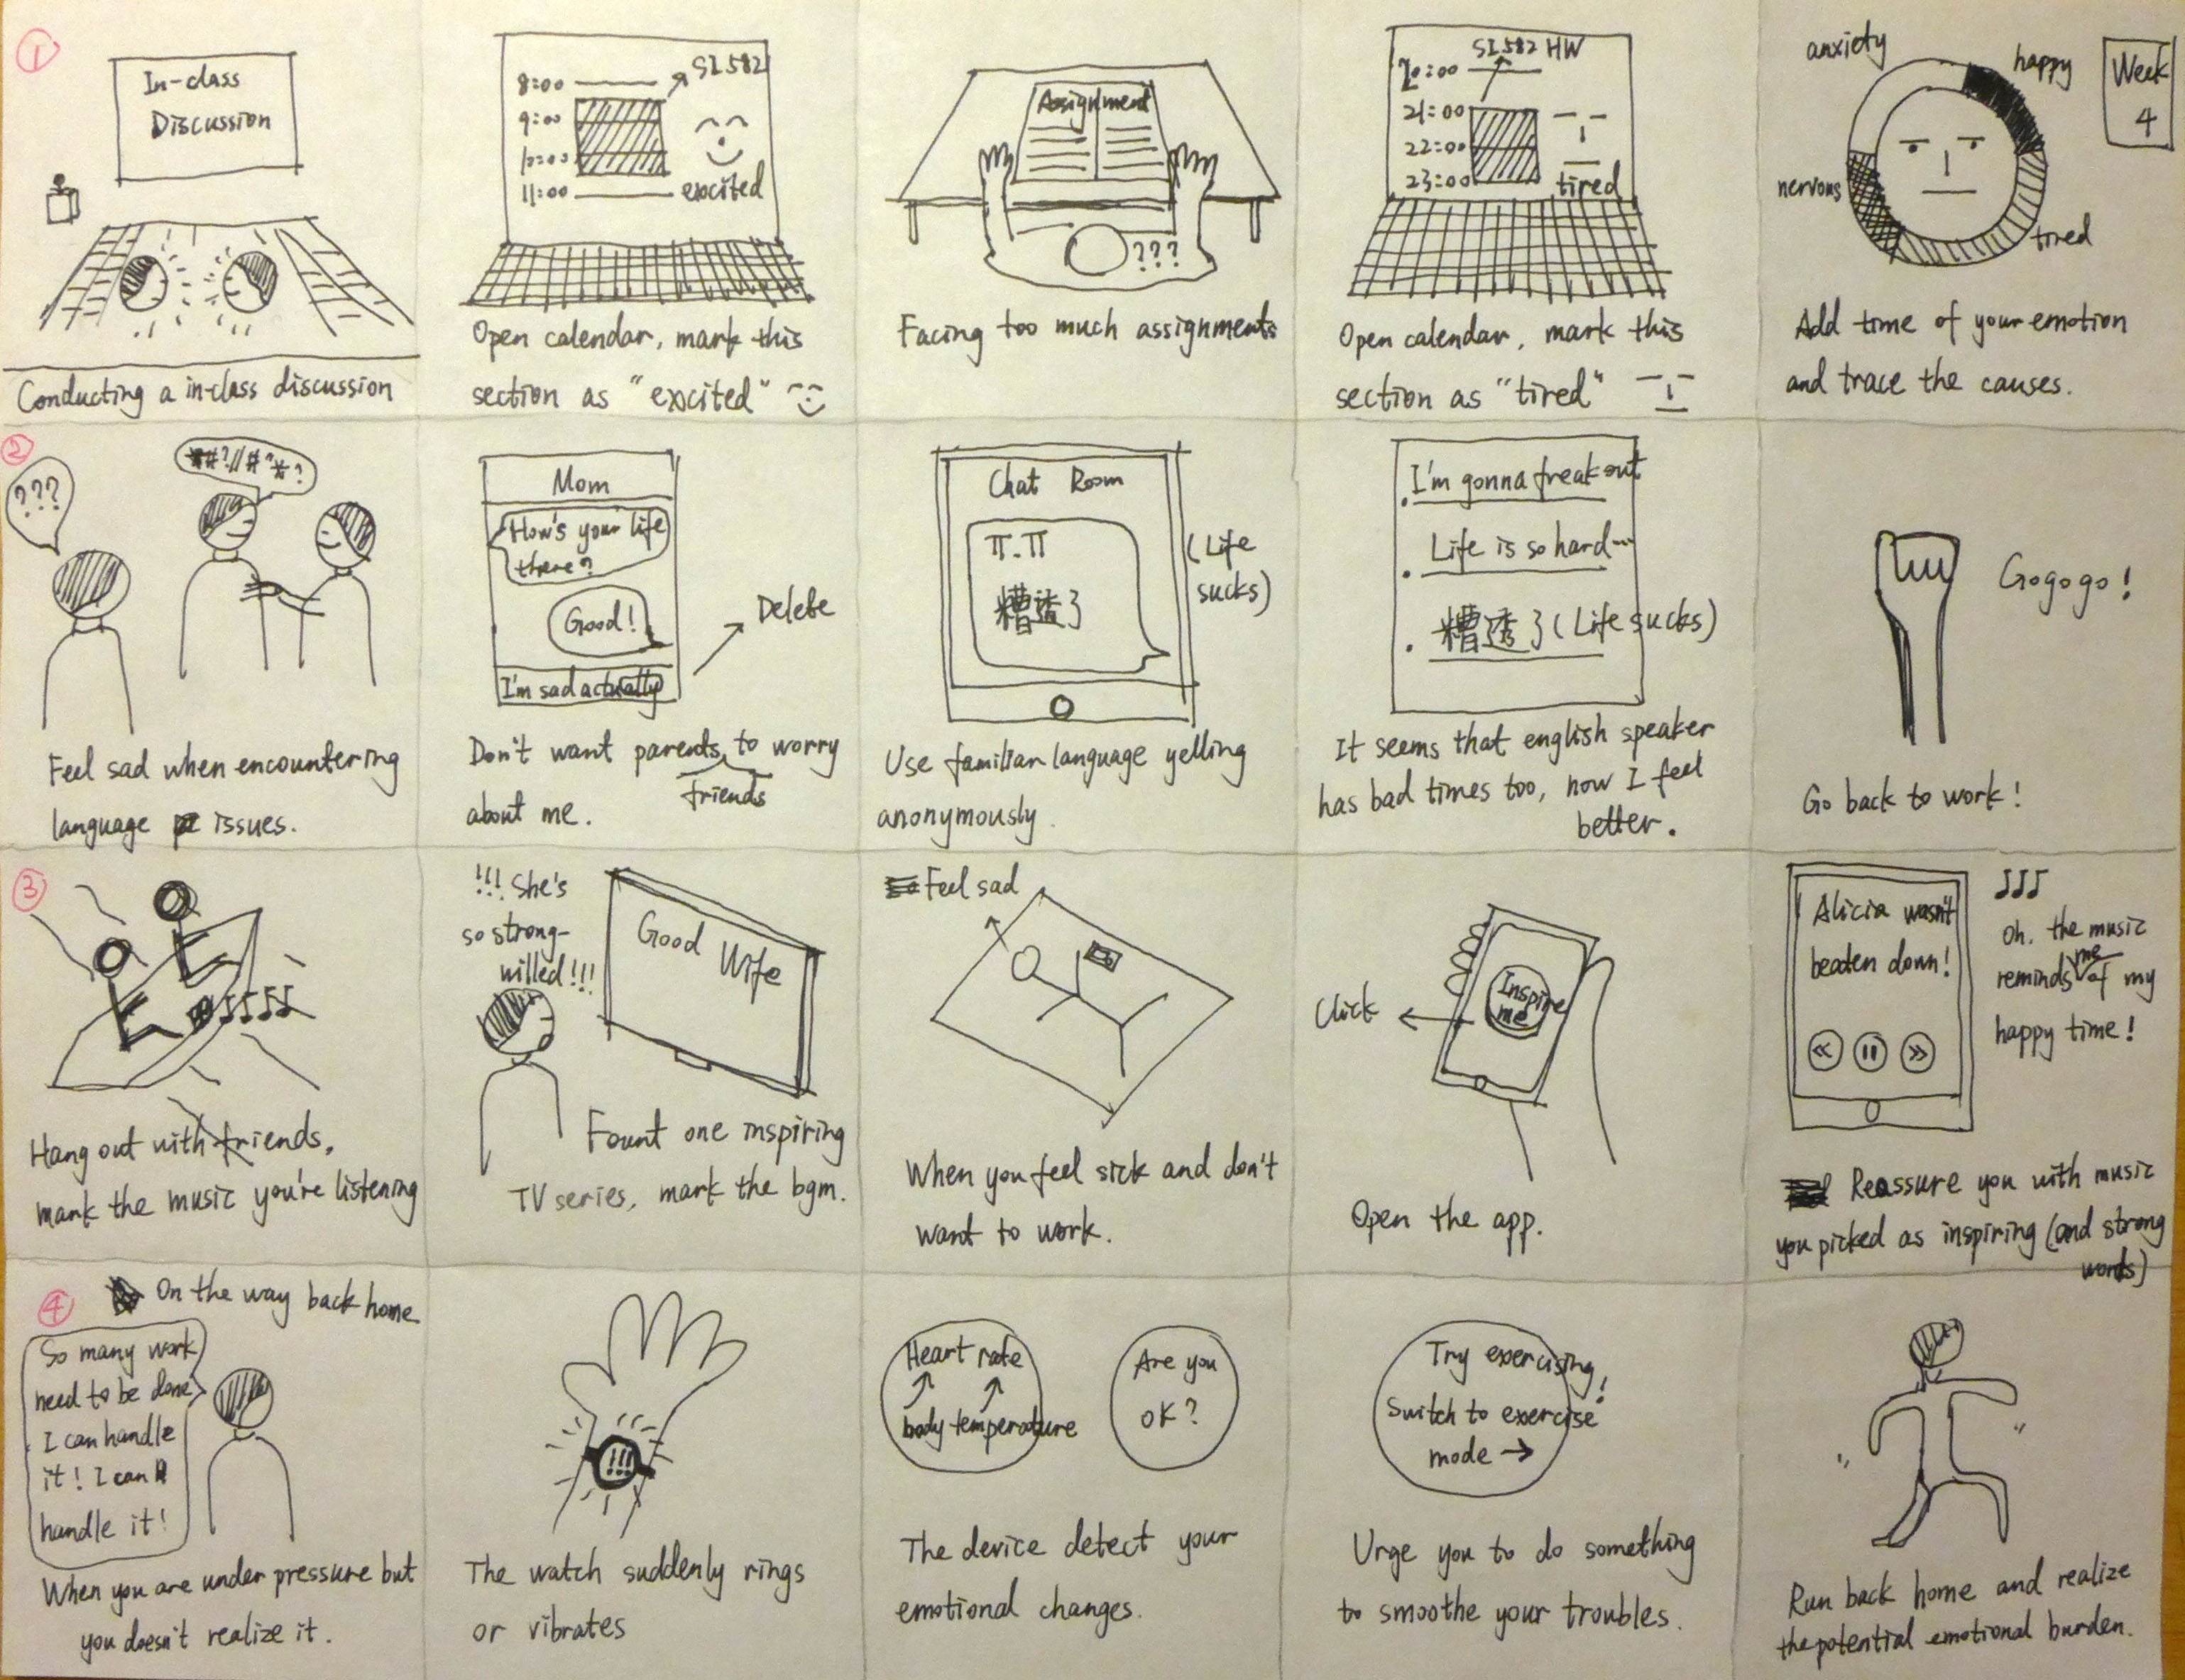 ①
In-class
Discussion
Conducting a in-class discussion
8:00
9:00
10:00
11:00
SI 582
excited
Open calendar, mark this
section as "excited"
Assignment
???
Facing too much assignments
SI 582 HW
20:00
21:00
22:00
23:00
tired
Open calendar, mark this
section as "tired"
anxiety
happy
nervous
tired
Week
4
Add time of your emotion
and trace the causes.
②
???
*#?//#"*?
Feel sad when encountering
language issues.
Mom
How's your life
there?
Good!
I'm sad actually
Delete
Don't want parents to worry
friends
about me.
Chat Room
π.π
糟透了
(Life
sucks)
Use familiar language yelling
anonymously.
I'm gonna freak out
Life is so hard...
糟透了(Life sucks)
It seems that english speaker
has bad times too, now I feel
better.
Gogogo!
Go back to work!
③
Hang out with friends,
mark the music you're listening
!!! She's
so strong-
willed!!!
Good Wife
Fount one inspiring
TV series, mark the bgm.
Feel sad
When you feel sick and don't
want to work.
Inspire
me
Click
Open the app.
Alicia wasn't
beaten down!
♪♪♪
Oh, the music
reminds me of my
happy time!
Reassure you with music
you picked as inspiring (and strong
words)
④
On the way back home
So many work
need to be done
I can handle
it! I can
handle it!
When you are under pressure but
you doesn't realize it.
!!!
The watch suddenly rings
or vibrates
Heart rate
body temperature
Are you
OK?
The device detect your
emotional changes.
Try exercising!
Switch to exercise
mode →
Urge you to do something
to smoothe your troubles.
Run back home and realize
the potential emotional burden.